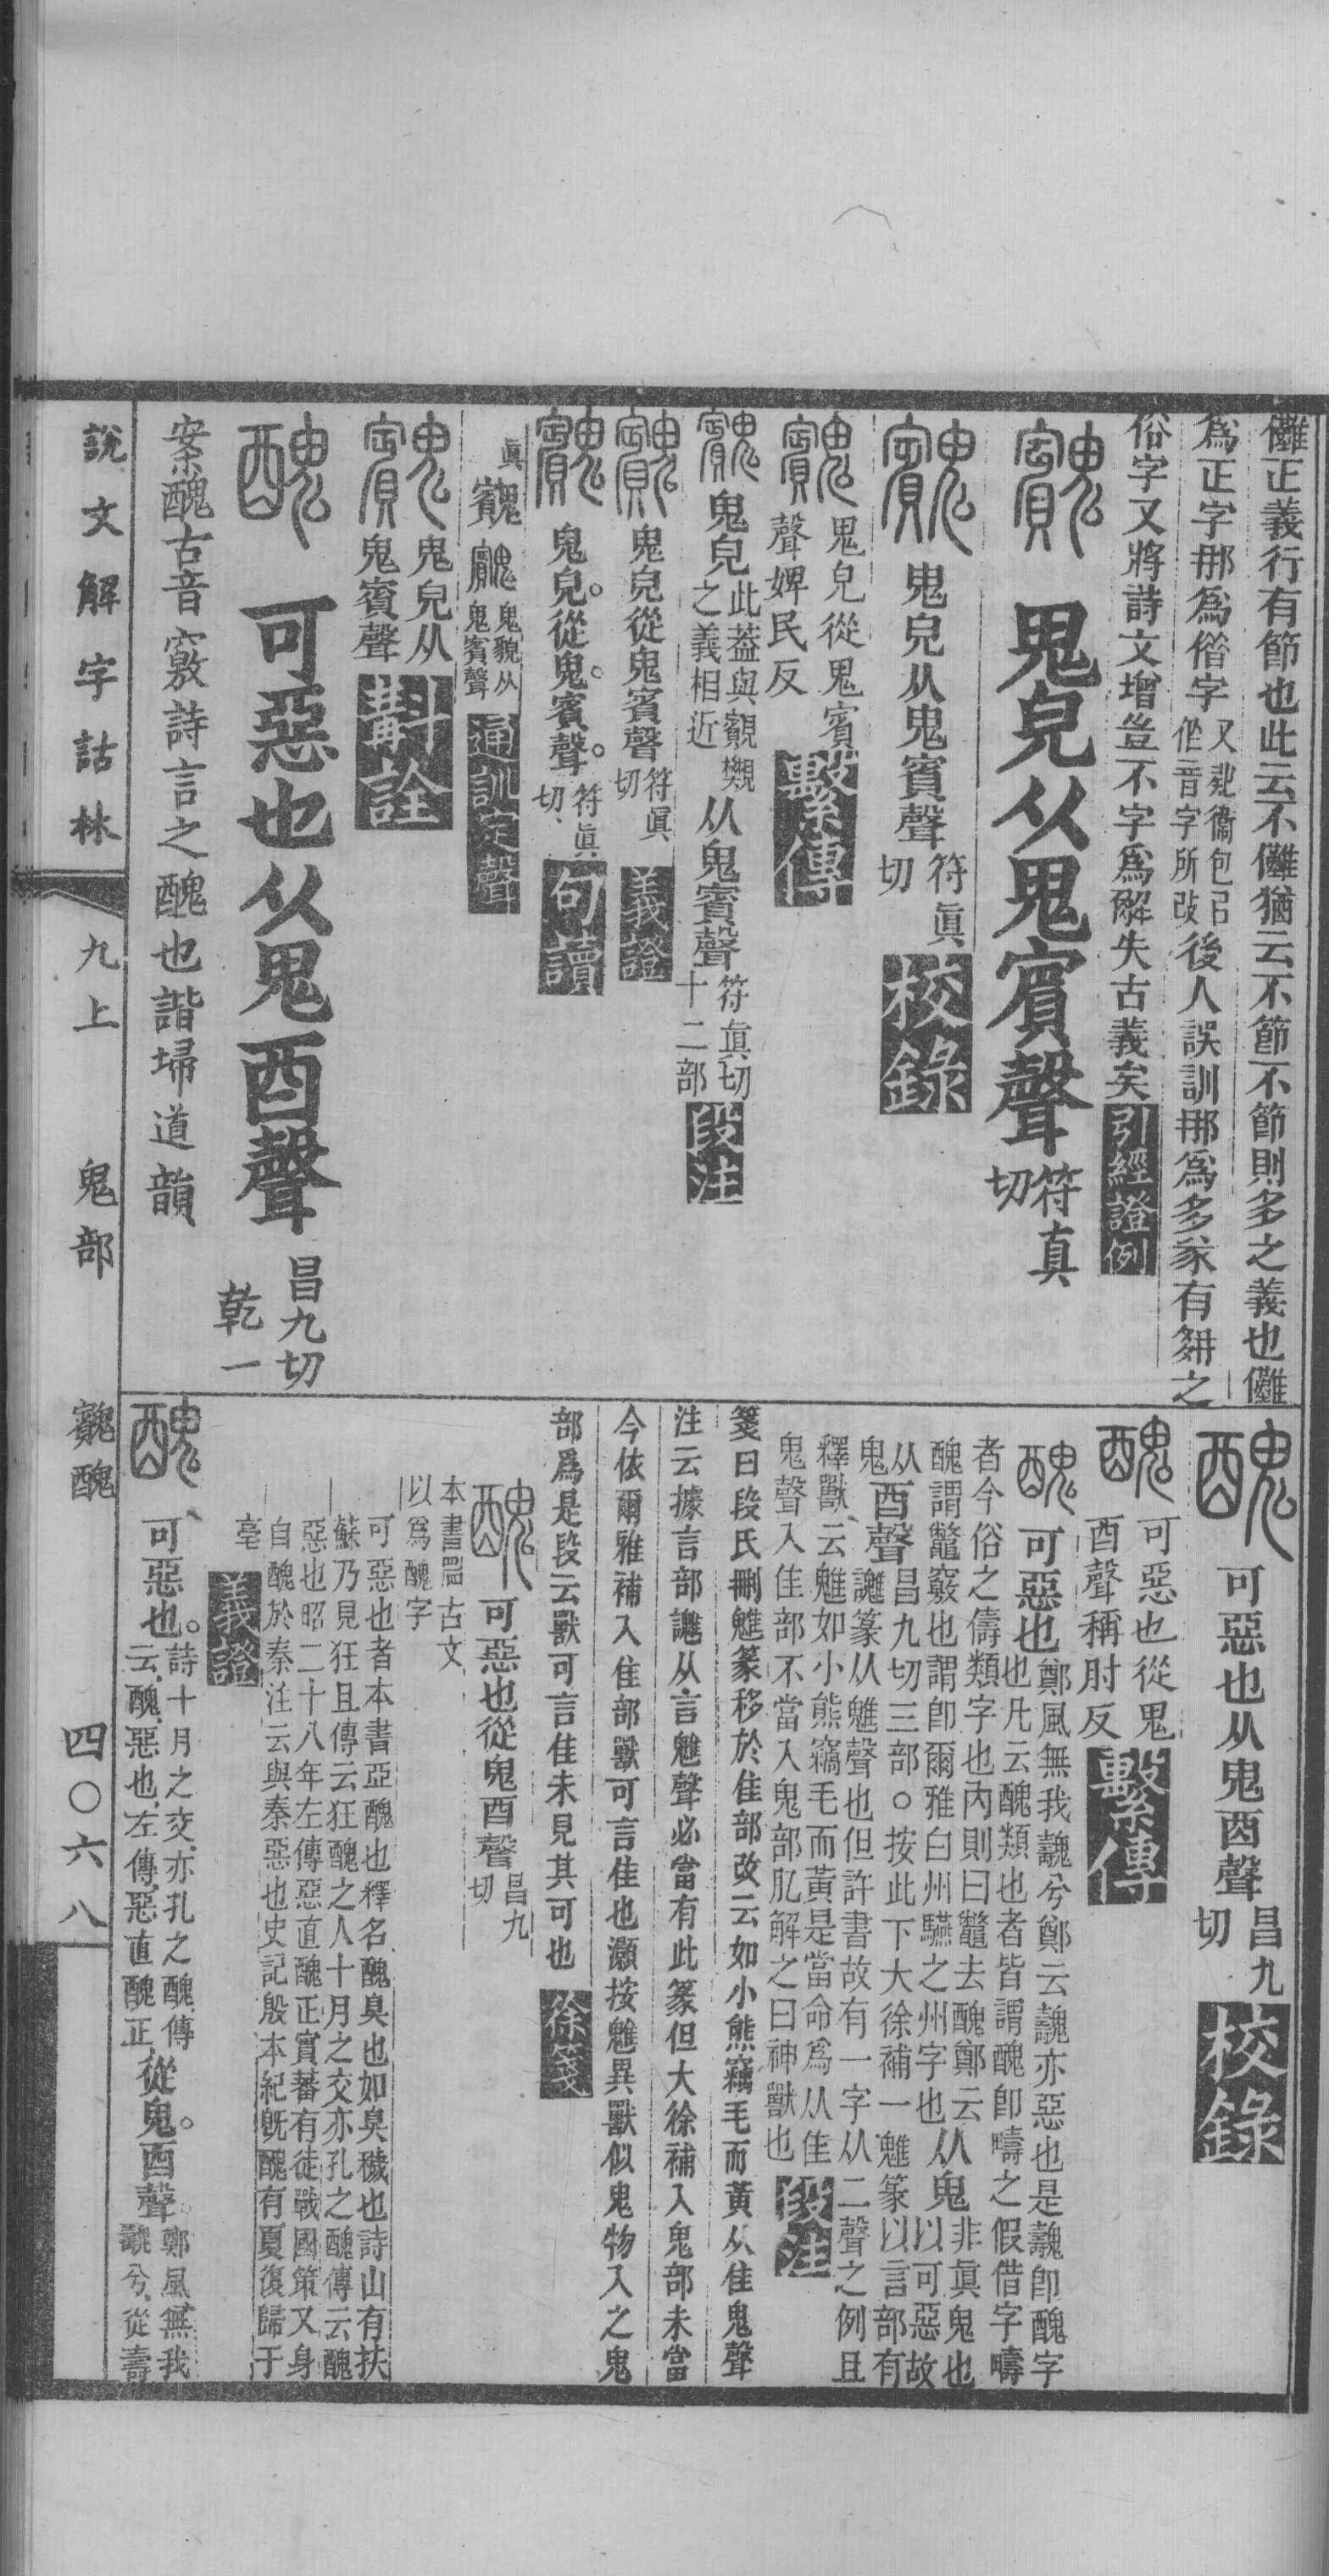 儺正義行有節也此云不儺猶云不節不節則多之義也儺
爲正字那爲俗字又
音字所改後人誤訓那爲多豕有𦕈之
俗字又將詩文增豈不字爲解失古義矣引經證例
鬼皃从鬼賓聲符真切
鬼皃从鬼賓聲符眞切校錄
鬼皃從鬼賓聲婢民反繫傳
鬼皃此葢與覿覼之義相近从鬼賓聲符眞切十二部段注
鬼皃從鬼賓聲符眞切義證
鬼皃。從鬼。賓聲。符眞切、句讀
眞䰉鬼貌从鬼賓聲通訓定聲
鬼皃从鬼賓聲斠詮
醜可惡也从鬼酉聲昌九切
乾一
案醜古音竅詩言之醜也諧埽道韻
醜可惡也从鬼酉聲昌九切校錄
醜可惡也從鬼酉聲稱肘反繫傳
醜可惡也鄭風無我魗兮鄭云魗亦惡也是魗卽醜字
也凡云醜類也者皆謂醜卽疇之假借字疇
者今俗之儔類字也內則曰鼈去醜鄭云
醜謂鼈竅也謂卽爾雅白州驠之州字也从鬼非眞鬼也以可惡故
从鬼酉聲昌九切三部○按此下大徐補一魋篆以言部有
讎篆从魋聲也但許書故有一字从二聲之例且
釋獸云魋如小熊竊毛而黃是當命爲从隹
鬼聲入隹部不當入鬼部肊解之曰神獸也段注
箋曰段氏刪魋篆移於隹部改云如小熊竊毛而黃从隹鬼聲
注云據言部讎从言魋聲必當有此篆但大徐補入鬼部未當
今依爾雅補入隹部獸可言隹也灝按魋異獸似鬼物入之鬼
部爲是段云獸可言隹未見其可也徐箋
醜可惡也從鬼酉聲昌九切
本書古文以爲醜字
可惡也者本書亞醜也釋名醜臭也如臭穢也詩山有扶
蘇乃見狂且傳云狂醜之人十月之交亦孔之醜傳云醜
惡也昭二十八年左傳惡直醜正實蕃有徒戰國策又身
自醜於秦注云與秦惡也史記殷本紀旣醜有夏復歸于
亳義證
醜、可惡也。詩十月之交、亦孔之醜、傳云、醜、惡也、左傳、惡直醜正、從鬼。酉聲。鄭風、無我魗兮、從壽
說文解字詁林
九上
鬼部
䰉醜
四〇六八